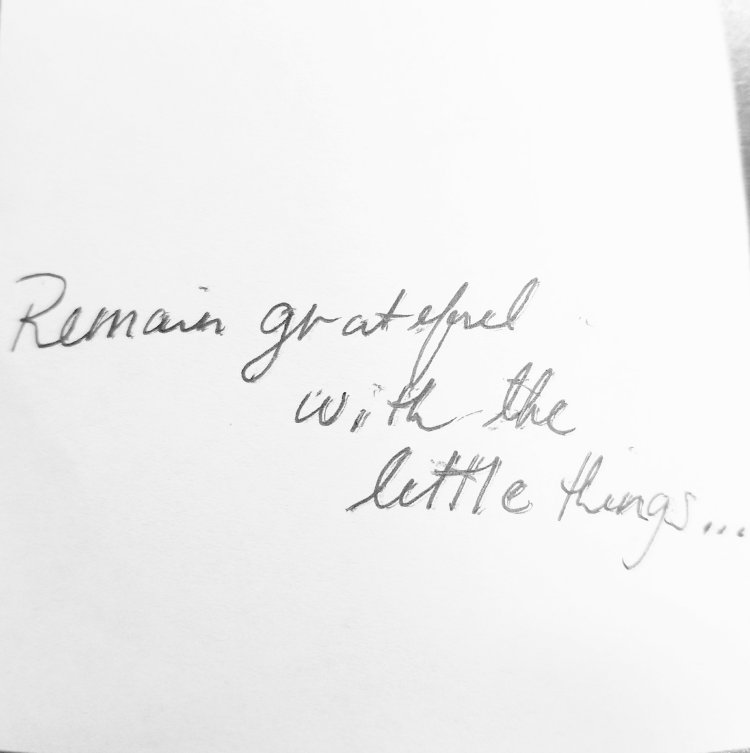 Remain grateful
with the
little things...